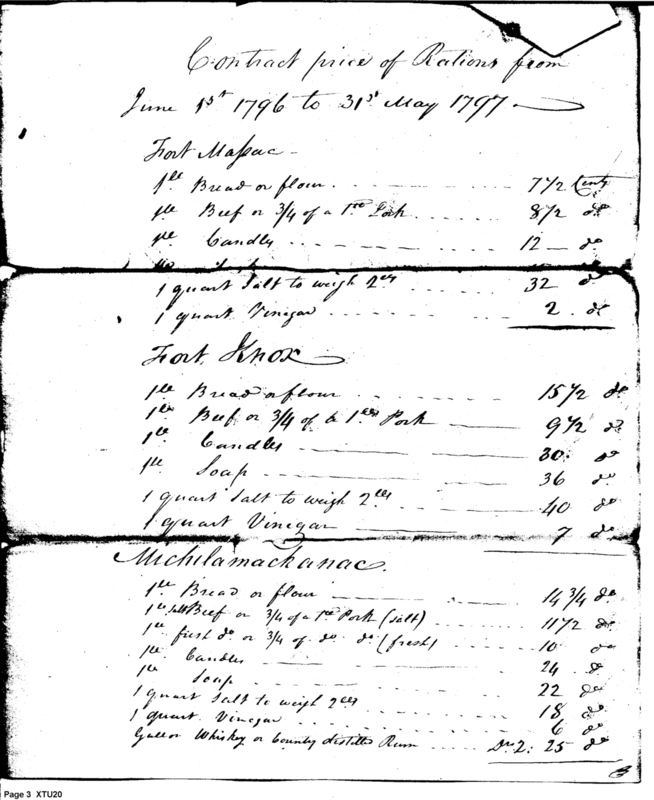 Contract price of Rations from
June 1st 1796 to 31st May 1797
Fort Massac
1 lb Bread or flour 7 1/2 Cents
1 lb Beef or 3/4 of a lb Pork 8 1/2 do
1 lb Candles 12 do
1 quart Salt to weigh 2 lbs 32 do
1 quart Vinegar 2 do
Fort Knox
1 lb Bread or flour 15 1/2 do
1 lb Beef or 3/4 of a lb Pork 9 1/2 do
1 lb Candles 30 do
1 lb Soap 36 do
1 quart Salt to weigh 2 lbs 40 do
1 quart Vinegar 7 do
Michilamackanac.
1 lb Bread or flour 14 3/4 do
1 lb Salt Beef or 3/4 of a lb Pork (salt) 11 1/2 do
1 lb fresh do or 3/4 of do do (fresh) 10 do
1 lb Candles 24 do
1 lb Soap 22 do
1 quart Salt to weigh 2 lbs 18 do
1 quart Vinegar 6 do
Gallon Whiskey or Country distilled Rum 2: 25 do
Page 3 XTU20